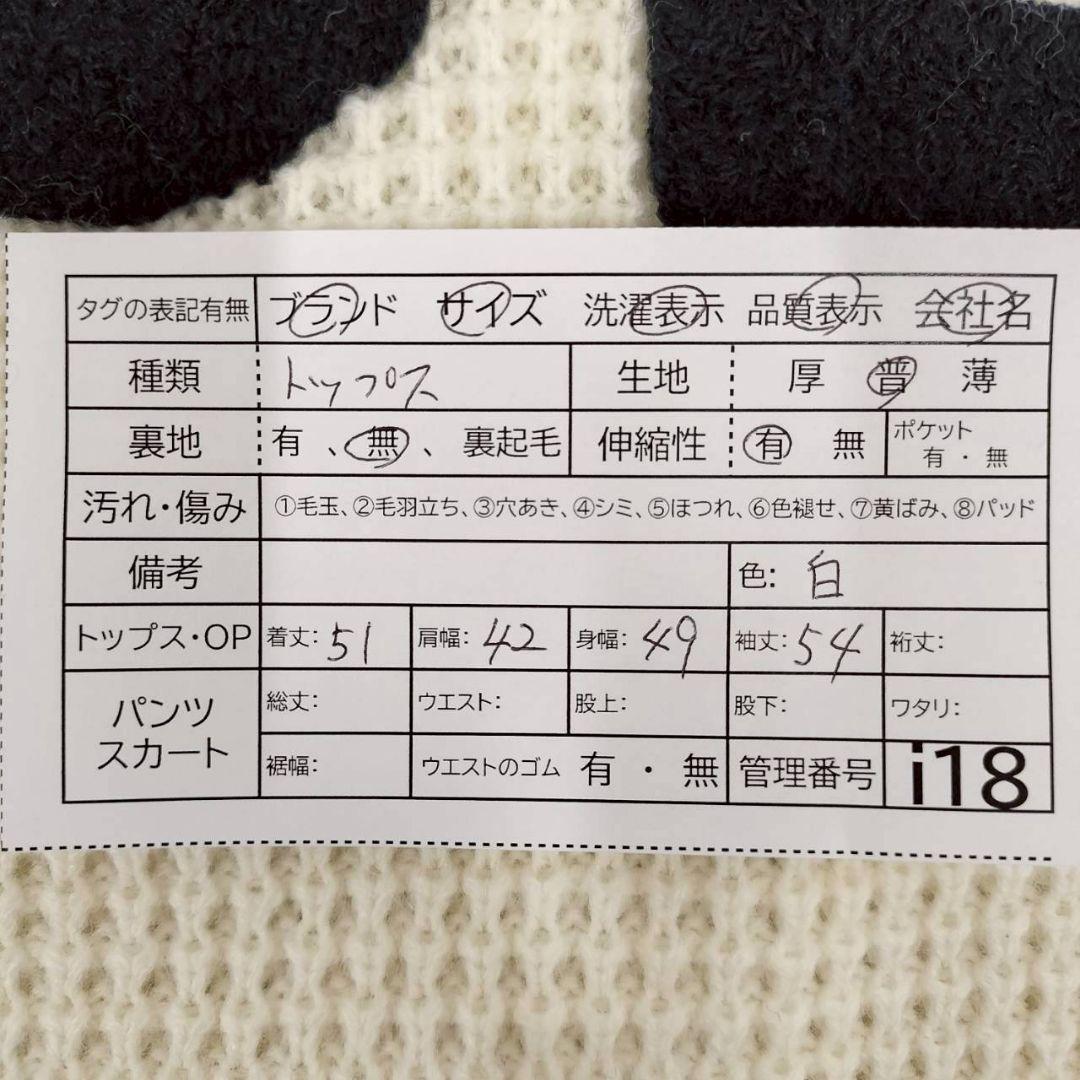 タグの表記有無 ブランド サイズ 洗濯表示 品質表示 会社名
種類 トップス 生地 厚 普 薄
裏地 有 、無 、 裏起毛 伸縮性 有 無 ポケット 有 ・ 無
汚れ・傷み ①毛玉、②毛羽立ち、③穴あき、④シミ、⑤ほつれ、⑥色褪せ、⑦黄ばみ、⑧パッド
備考 色: 白
トップス・OP 着丈: 51 肩幅: 42 身幅: 49 袖丈: 54 裄丈:
パンツ スカート 総丈: ウエスト: 股上: 股下: ワタリ:
裾幅: ウエストのゴム 有 ・ 無 管理番号 i18